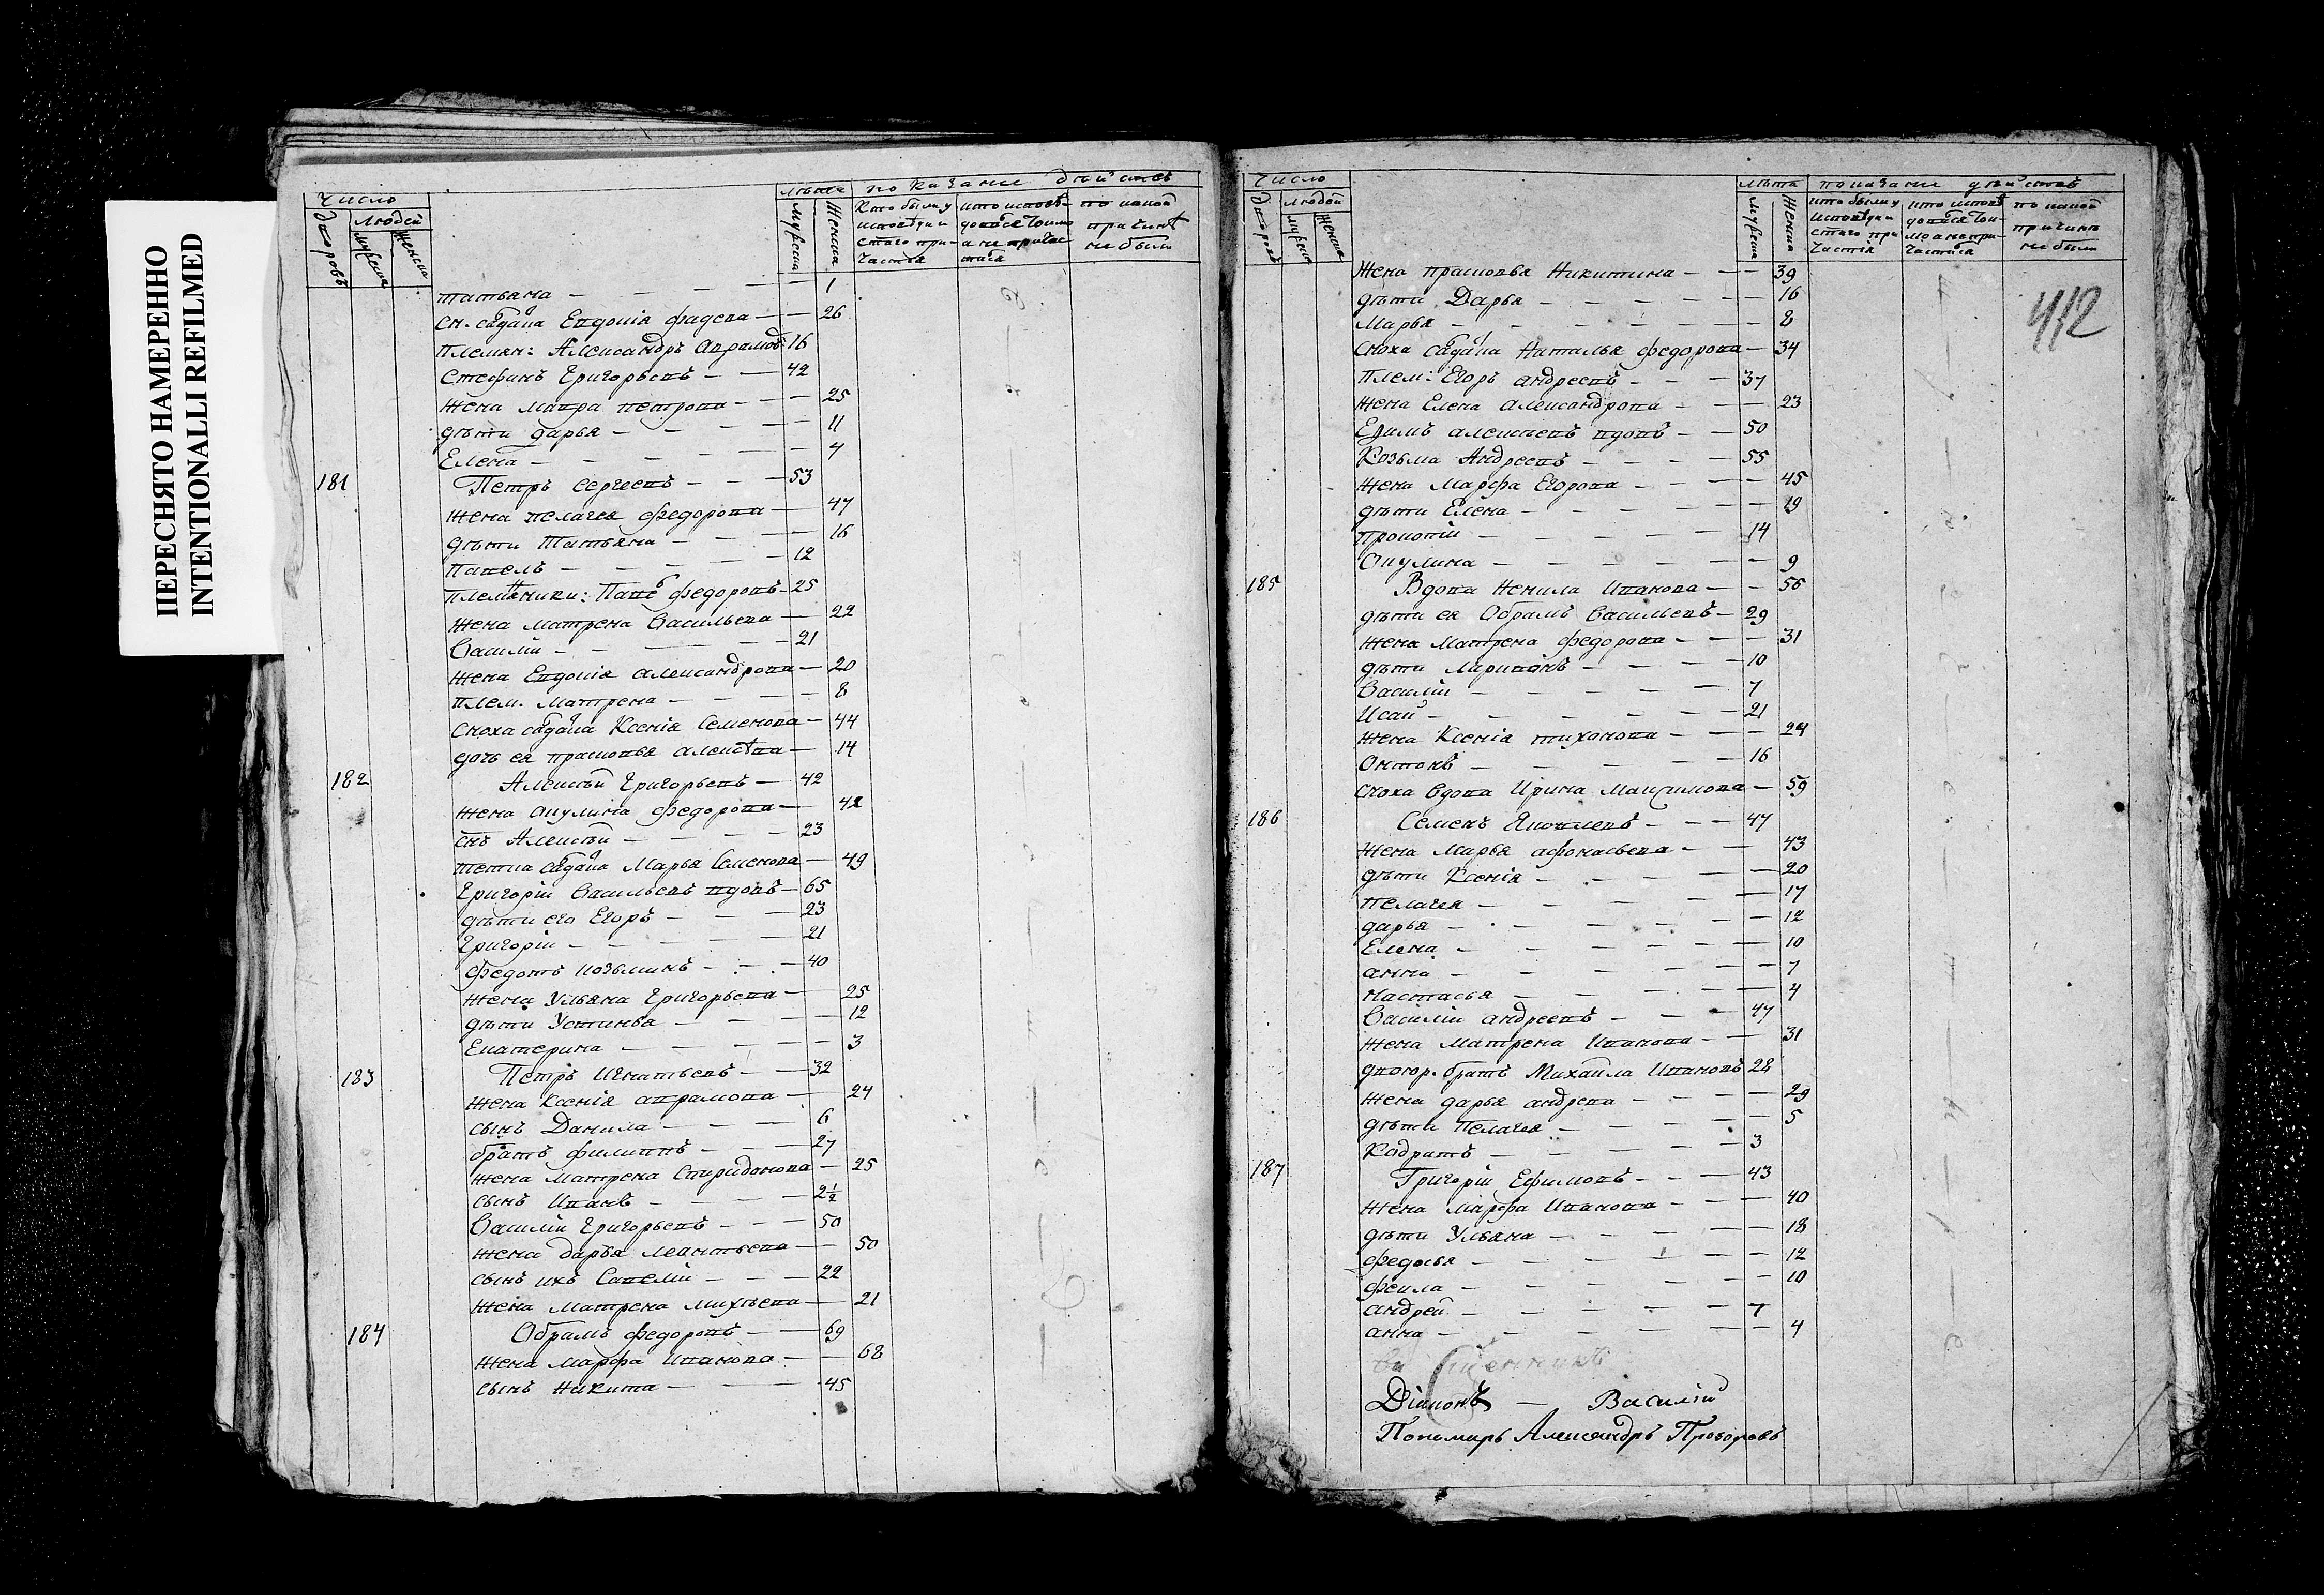 ПЕРЕСНЯТО НАМЕРЕННО
INTENTIONALLI REFILMED
Число
Дворовъ
людей
мужеска
женска
лѣта
мужеска
женска
показанiе дѣйствъ
Кто были у исповѣди и стаго причастья
кто исповѣдался токмо а не причастися
по какой причинѣ не были
татьяна — 1
сн. сядача Евдокiя фадева — 26
племян: Александръ Аврамов: 16
Стефанъ Григорьевъ — 42
жена мавра петрова — 25
дѣти дарья — 11
Елена — 4
181 Петръ Сергеевъ — 53
жена пелагея федорова — 47
дѣти Татьяна — 16
Павелъ — 12
племянники: Паве федоровъ — 25
жена матрена Васильева — 22
Василiй — 21
жена Евдокiя александрова — 20
плем. матрена — 8
сноха Ксенiя Семенова — 44
дочь ея прасковья алексѣва — 14
182 Алексѣй Григорьевъ — 42
жена акулина федорова — 42
снъ Алексѣй — 23
тетка Марья Семенова — 49
Григорiй Васильевъ вдовъ — 65
дѣти его Егоръ — 23
Григорiй — 21
федотъ козьминъ — 40
жена ульяна Григорьева — 25
дѣти Устинья — 12
Екатерина — 3
183 Петръ Игнатьевъ — 32
жена ксенiя аврамова — 24
сынъ Данила — 6
братъ филиппъ — 27
жена матрена Спиридонова — 25
сынъ Иванъ — 2½
Василiй Григорьевъ — 50
жена дарья леонтьева — 50
сынъ ихъ Савелiй — 22
жена матрена михѣева — 21
184 Обрамъ федоровъ — 69
жена марфа иванова — 68
сынъ никита — 45
Число
Дворовъ
людей
мужеска
женска
лѣта
мужеска
женска
показанiе дѣйствъ
кто были у исповѣди и стаго причастiя
кто исповѣдался токмо а не причастися
по какой причинѣ не были
412
жена прасковья Никитина — 39
дѣти Дарья — 16
Марья — 8
сноха Наталья федорова — 34
плем: Егоръ андреевъ — 37
жена Елена александрова — 23
Ефимъ алексѣевъ вдовъ — 50
Козьма Андреевъ — 55
жена Марфа Егорова — 45
дѣти Елена — 19
прокопiй — 14
Окулина — 9
185 Вдова Ненила Иванова — 56
дѣти ея Обрамъ Васильевъ — 29
жена Матрена федорова — 31
дѣти ларивонъ — 10
Василiй — 7
Исай — 21
жена Ксенiя тихонова — 24
Онтонъ — 16
сноха вдова Ирина Максимова — 59
186 Семенъ Яковлевъ — 47
жена Марья афонасьева — 43
дѣти Ксенiя — 20
пелагея — 17
дарья — 12
Елена — 10
анна — 7
настасья — 4
Василiй андреевъ — 47
жена Матрена Иванова — 31
двоюр. братъ Михайла Ивановъ 28
жена дарья андрева — 29
дѣти Пелагея — 5
Кодратъ — 3
187 Григорiй Ефимовъ — 43
жена марфа Иванова — 40
дѣти Ульяна — 18
федосья — 12
фекла — 10
андрей — 7
анна — 4
Дiаконъ — Василiй
Пономарь Александръ Прохоровъ